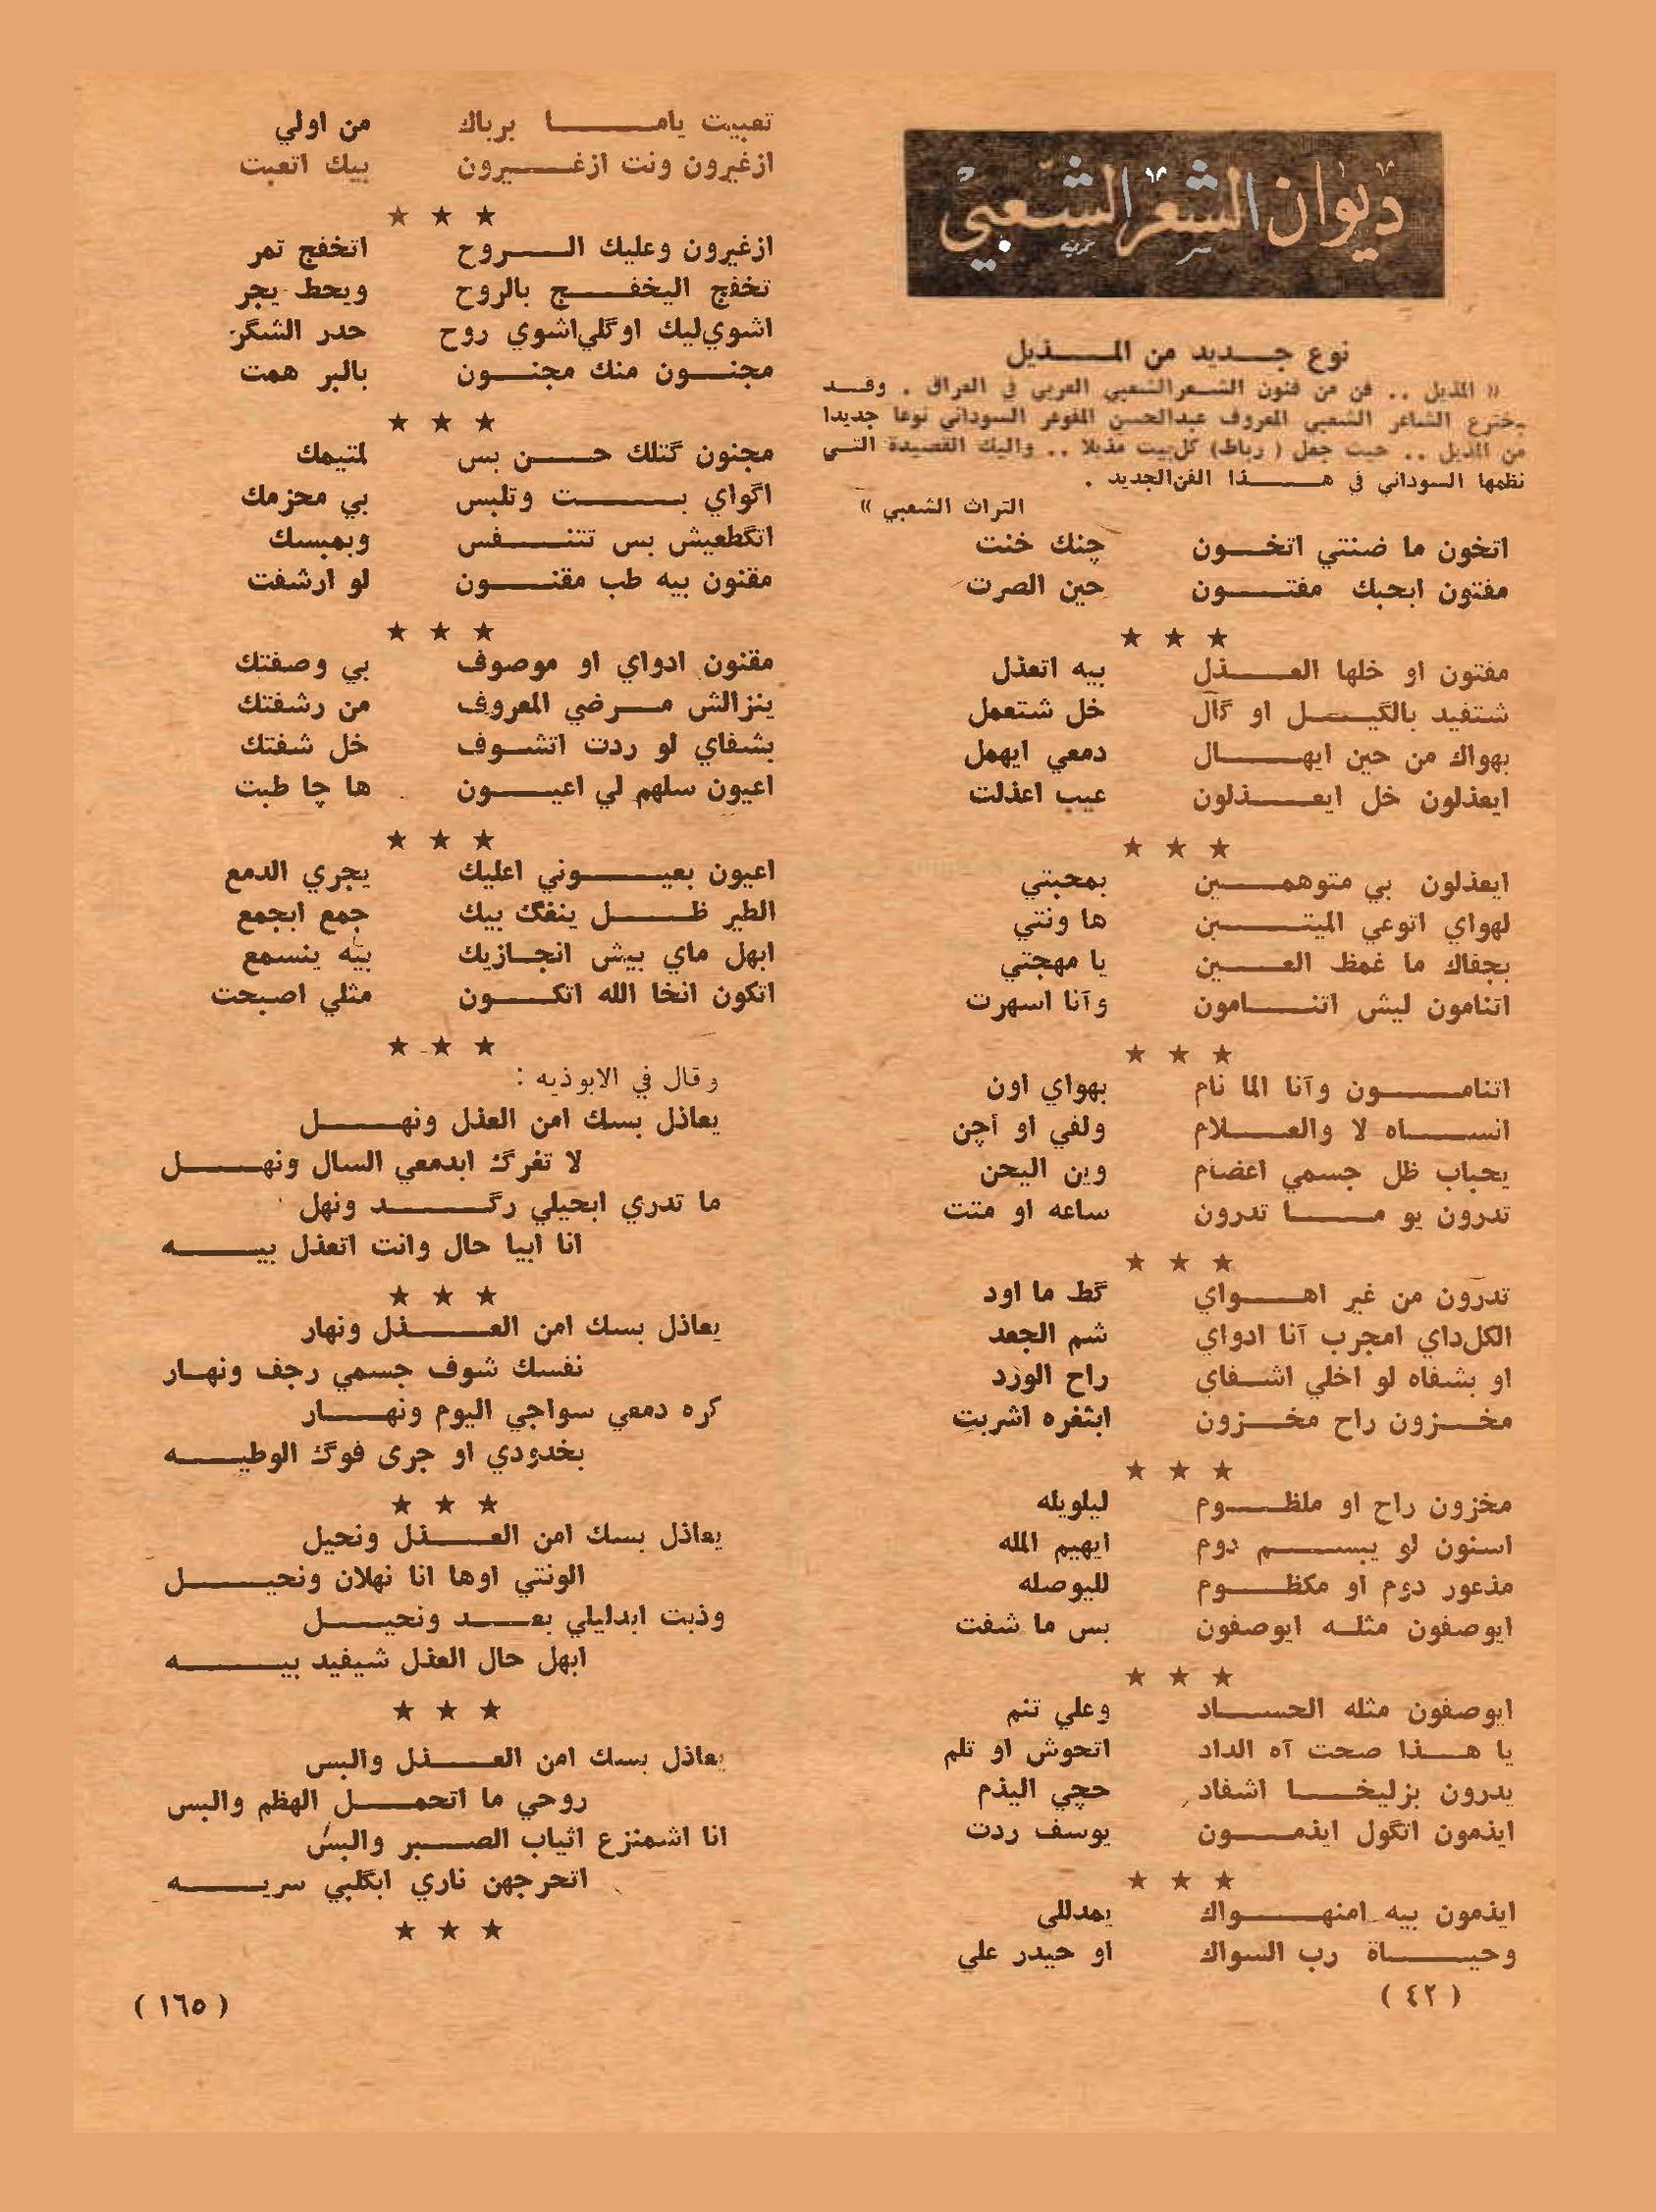 ديوان الشعر الشعبي
نوع جديد من المذيل
« المذيل .. فن من فنون الشعر الشعبي العربي في العراق . وقد
يخترع الشاعر الشعبي المعروف عبدالحسن المفوعر السوداني نوعا جديدا
من المذيل .. حيث جعل ( رباط ) كل بيت مذيلا .. واليك القصيدة التي
نظمها السوداني في هذا الفن الجديد .
التراث الشعبي »
اتخون ما ضنتي اتخون چنك خنت
مفتون ابحبك مفتون حين الصرت
★ ★ ★
مفتون او خلها العذل بيه اتعذل
شتفيد بالگيل او گال خل شتعمل
بهواك من حين ايهال دمعي ايهمل
ايعذلون خل ايعذلون عيب اعذلت
★ ★ ★
ايعذلون بي متوهمين بمحبتي
لهواي اتوعي الميتين ها ونتي
بجفاك ما غمظ العين يا مهجتي
اتنامون ليش اتنامون وآنا اسهرت
★ ★ ★
اتنامون وآنا الما نام بهواي اون
انساه لا والعلام ولفي او أچن
يحباب ظل جسمي اعضام وين اليحن
تدرون يو ما تدرون ساعه او متت
★ ★ ★
تدرون من غير اهواي گط ما اود
الكل داي امجرب آنا ادواي شم الجعد
او بشفاه لو اخلي اشفاي راح الورد
مخزون راح مخزون ابثغره اشربت
★ ★ ★
مخزون راح او ملظوم ليلويله
اسنون لو يبسم دوم ايهيم المله
مذعور دوم او مكظوم لليوصله
ايوصفون مثله ايوصفون بس ما شفت
★ ★ ★
ايوصفون مثله الحساد وعلي تنم
يا هذا صحت آه الداد اتحوش او تلم
يدرون بزليخا اشفاد حچي اليذم
ايذمون اتگول ايذمون يوسف ردت
★ ★ ★
ايذمون بيه امنهواك يمدللي
وحياة رب السواك او حيدر علي
( ٤٢ )
تعبيت ياما برباك من اولي
ازغيرون ونت ازغيرون بيك اتعبت
★ ★ ★
ازغيرون وعليك الروح اتخفج تمر
تخفج اليخفج بالروح ويحط يجر
اشوي ليك اوگلي اشوي روح حدر الشگر
مجنون منك مجنون بالبر همت
★ ★ ★
مجنون گتلك حسن بس لمتيمك
اگواي بست وتلبس بي محزمك
اتگطعيش بس تتنفس وبمبسك
مقنون بيه طب مقنون لو ارشفت
★ ★ ★
مقنون ادواي او موصوف بي وصفتك
ينزالش مرضي المعروف من رشفتك
بشفاي لو ردت اتشوف خل شفتك
اعيون سلهم لي اعيون ها چا طبت
★ ★ ★
اعيون بعيوني اعليك يجري الدمع
الطير ظل ينفگ بيك جمع ابجمع
ابهل ماي بيش انجازيك بيه ينسمع
اتكون انخا الله اتكون مثلي اصبحت
★ ★ ★
وقال في الابوذيه :
يعاذل بسك امن العذل ونهل
لا تفرگ ابدمعي السال ونهل
ما تدري ابحيلي رگد ونهل
انا ابيا حال وانت اتعذل بيه
★ ★ ★
يعاذل بسك امن العذل ونهار
نفسك شوف جسمي رجف ونهار
كره دمعي سواجي اليوم ونهار
بخدودي او جرى فوگ الوطيه
★ ★ ★
يعاذل بسك امن العذل ونحيل
الونتي اوها انا نهلان ونحيل
وذبت ابدليلي بعد ونحيل
ابهل حال العذل شيفيد بيه
★ ★ ★
يعاذل بسك امن العذل والبس
روحي ما اتحمل الهظم والبس
انا اشمنزع اثياب الصبر والبس
اتحرجهن ناري ابگلبي سريه
★ ★ ★
( ١٦٥ )